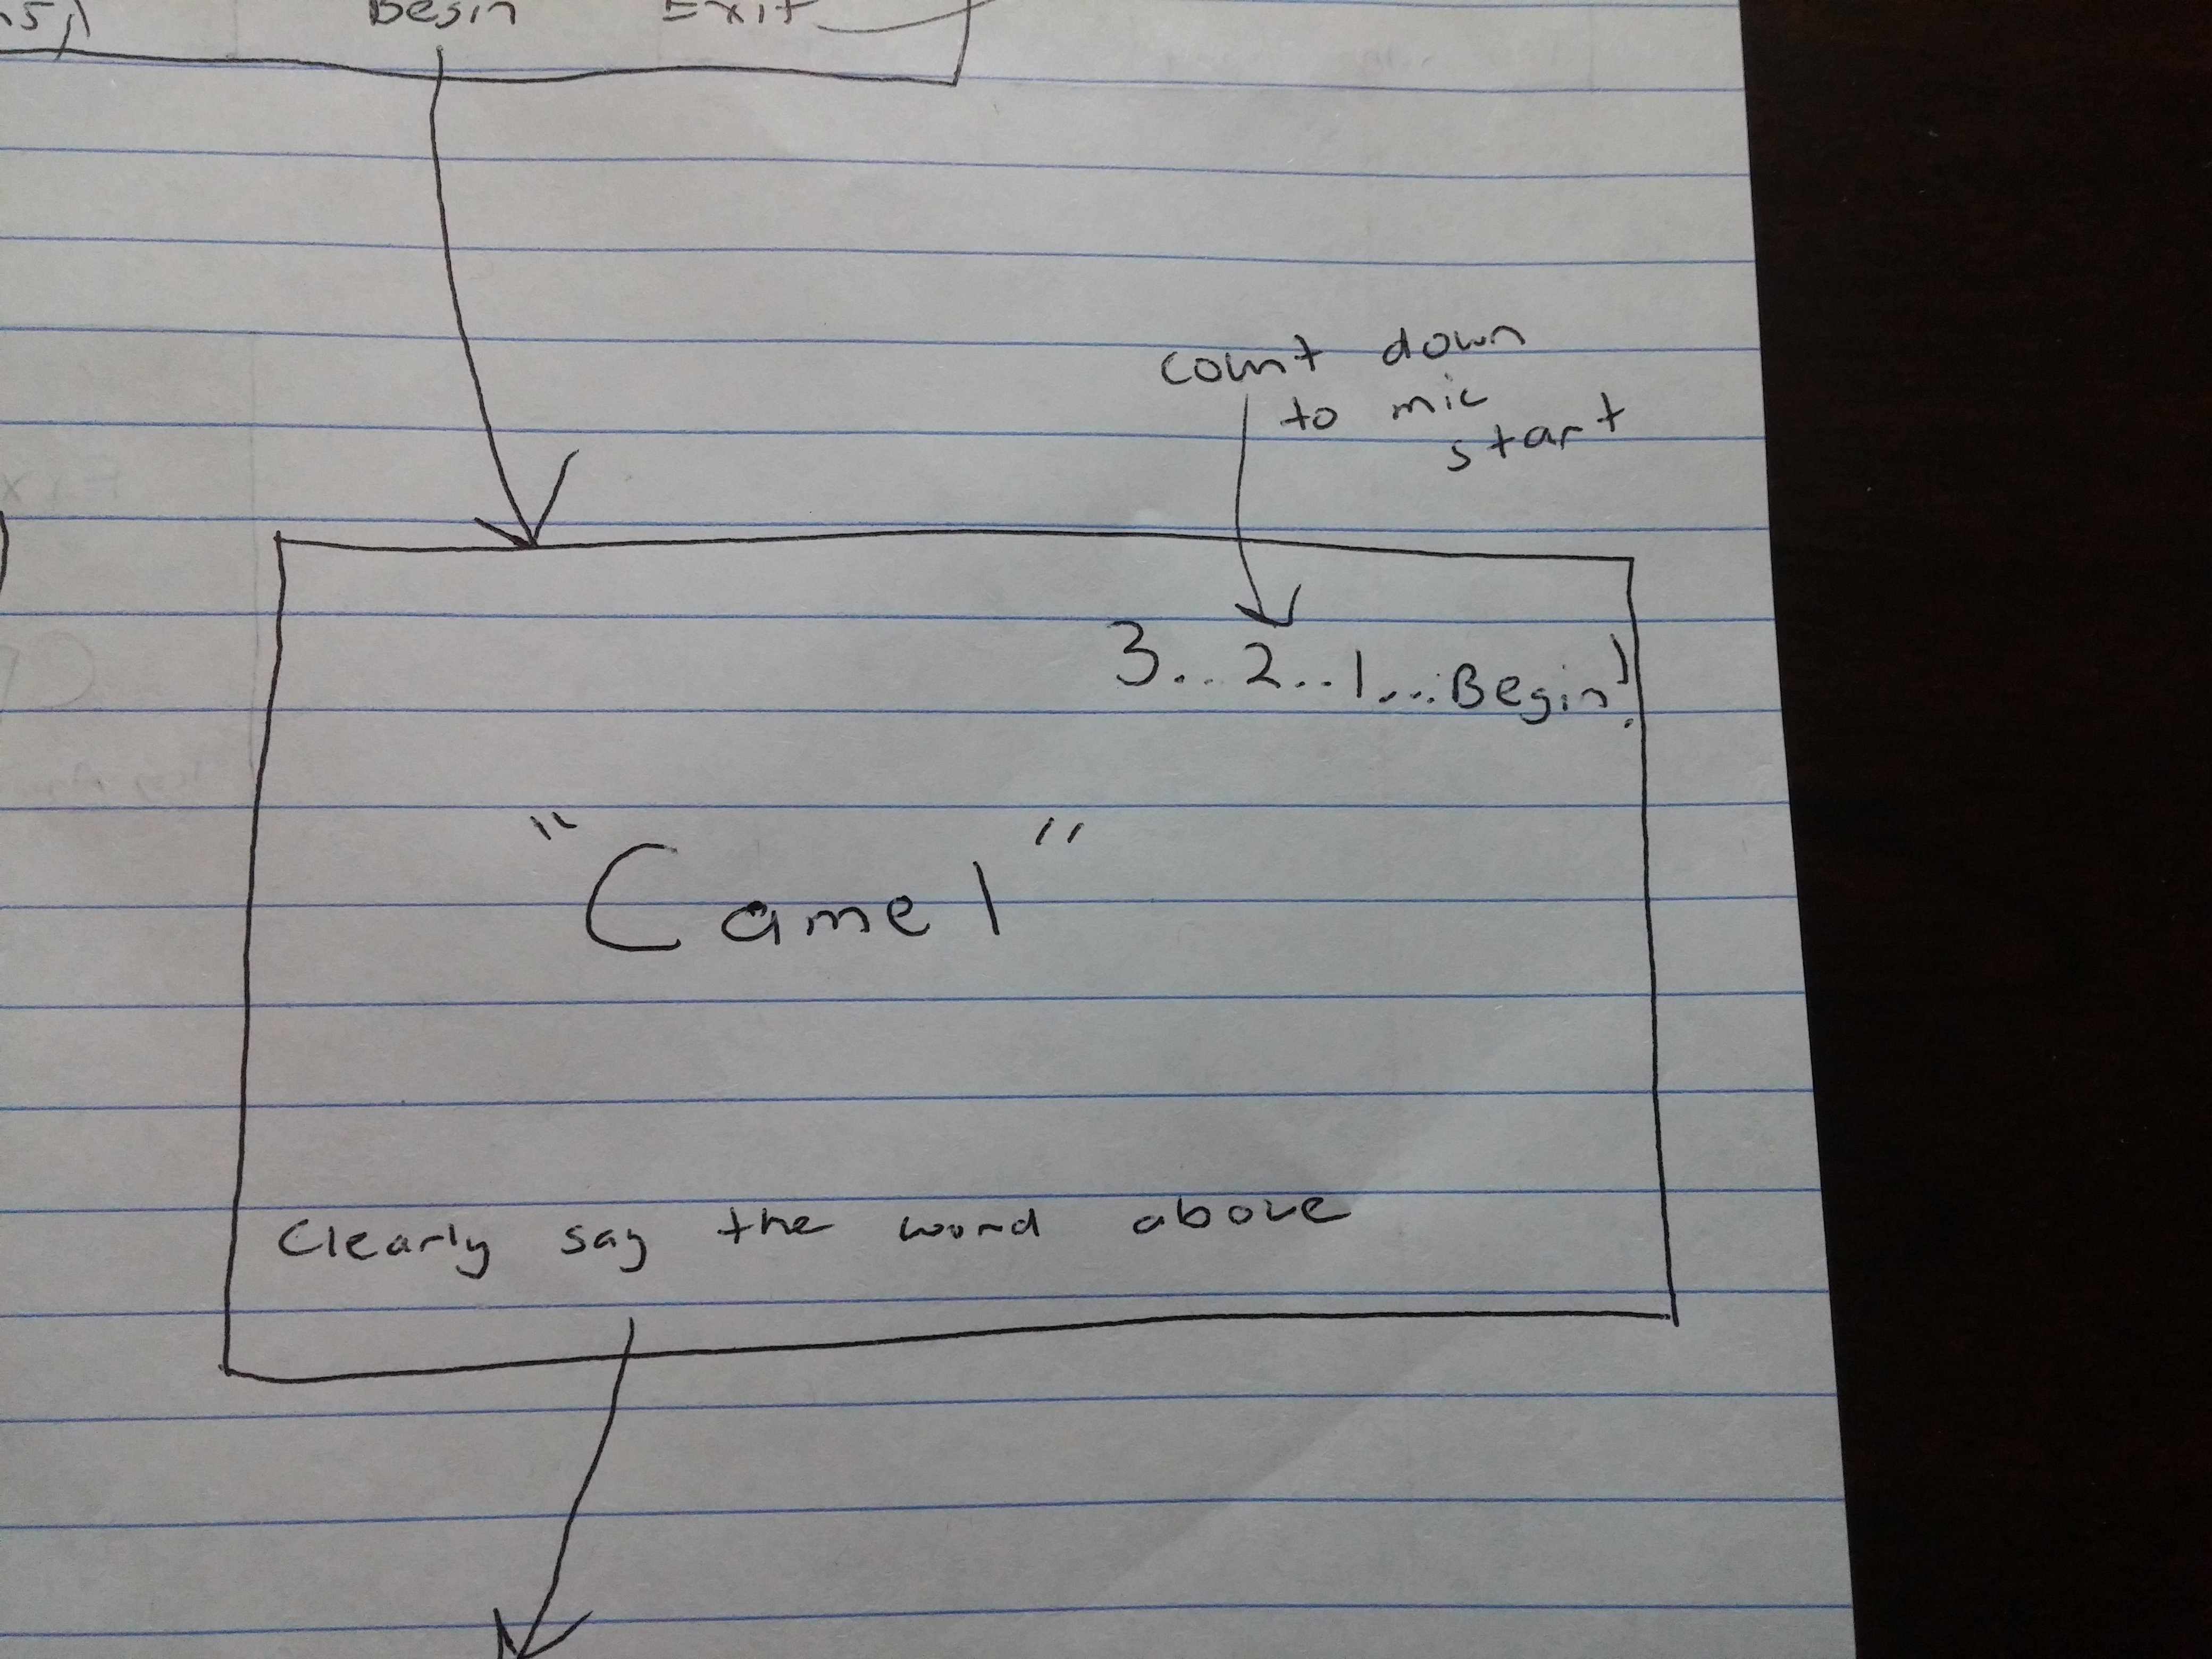 Begin Exit
count down
to mic
start
3... 2... 1... Begin!
"Camel"
Clearly say the word above